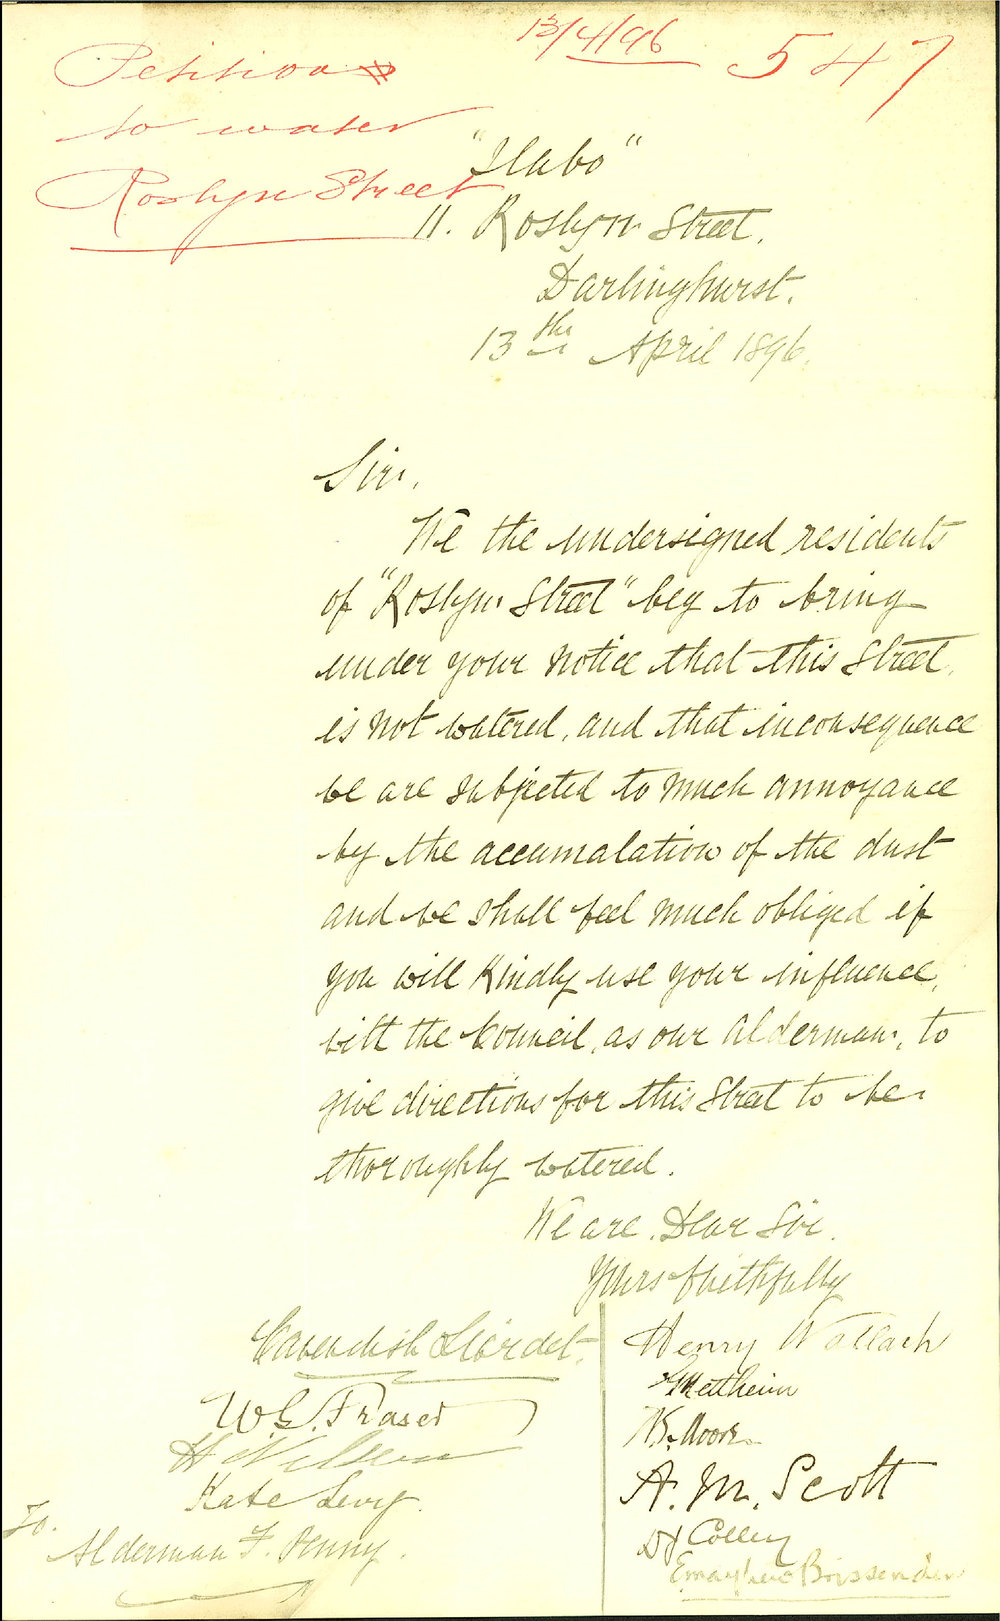 13/4/96 547
Petition
to water
Roslyn Street
"Ilabo"
11. Roslyn Street.
Darlinghurst.
13th April 1896.
Sir,
We the undersigned residents
of "Roslyn Street" beg to bring
under your notice that this Street,
is not watered, and that in consequence
we are subjected to much annoyance
by the accumalation of the dust
and we shall feel much obliged if
you will kindly use your influence,
with the Council, as our Alderman, to
give directions for this Street to be
thoroughly watered.
We are, Dear Sir.
Yours faithfully
Cavendish Liardet.
W G. Fraser
H Nelson
Kate Levy.
Henry Wallach
Mettheim
Moore
A. M. Scott
Colley
Brissenden
To.
Alderman F. Penny.